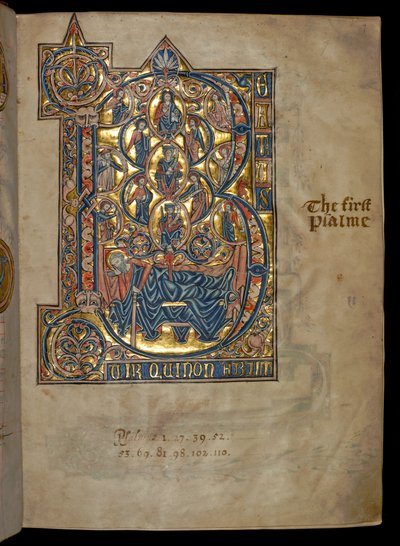 BEATUS
UIR QUI NON ABIIT
The first
Psalme
Psalmes 1. 27. 39. 52.
53. 69. 81. 98. 102. 110.